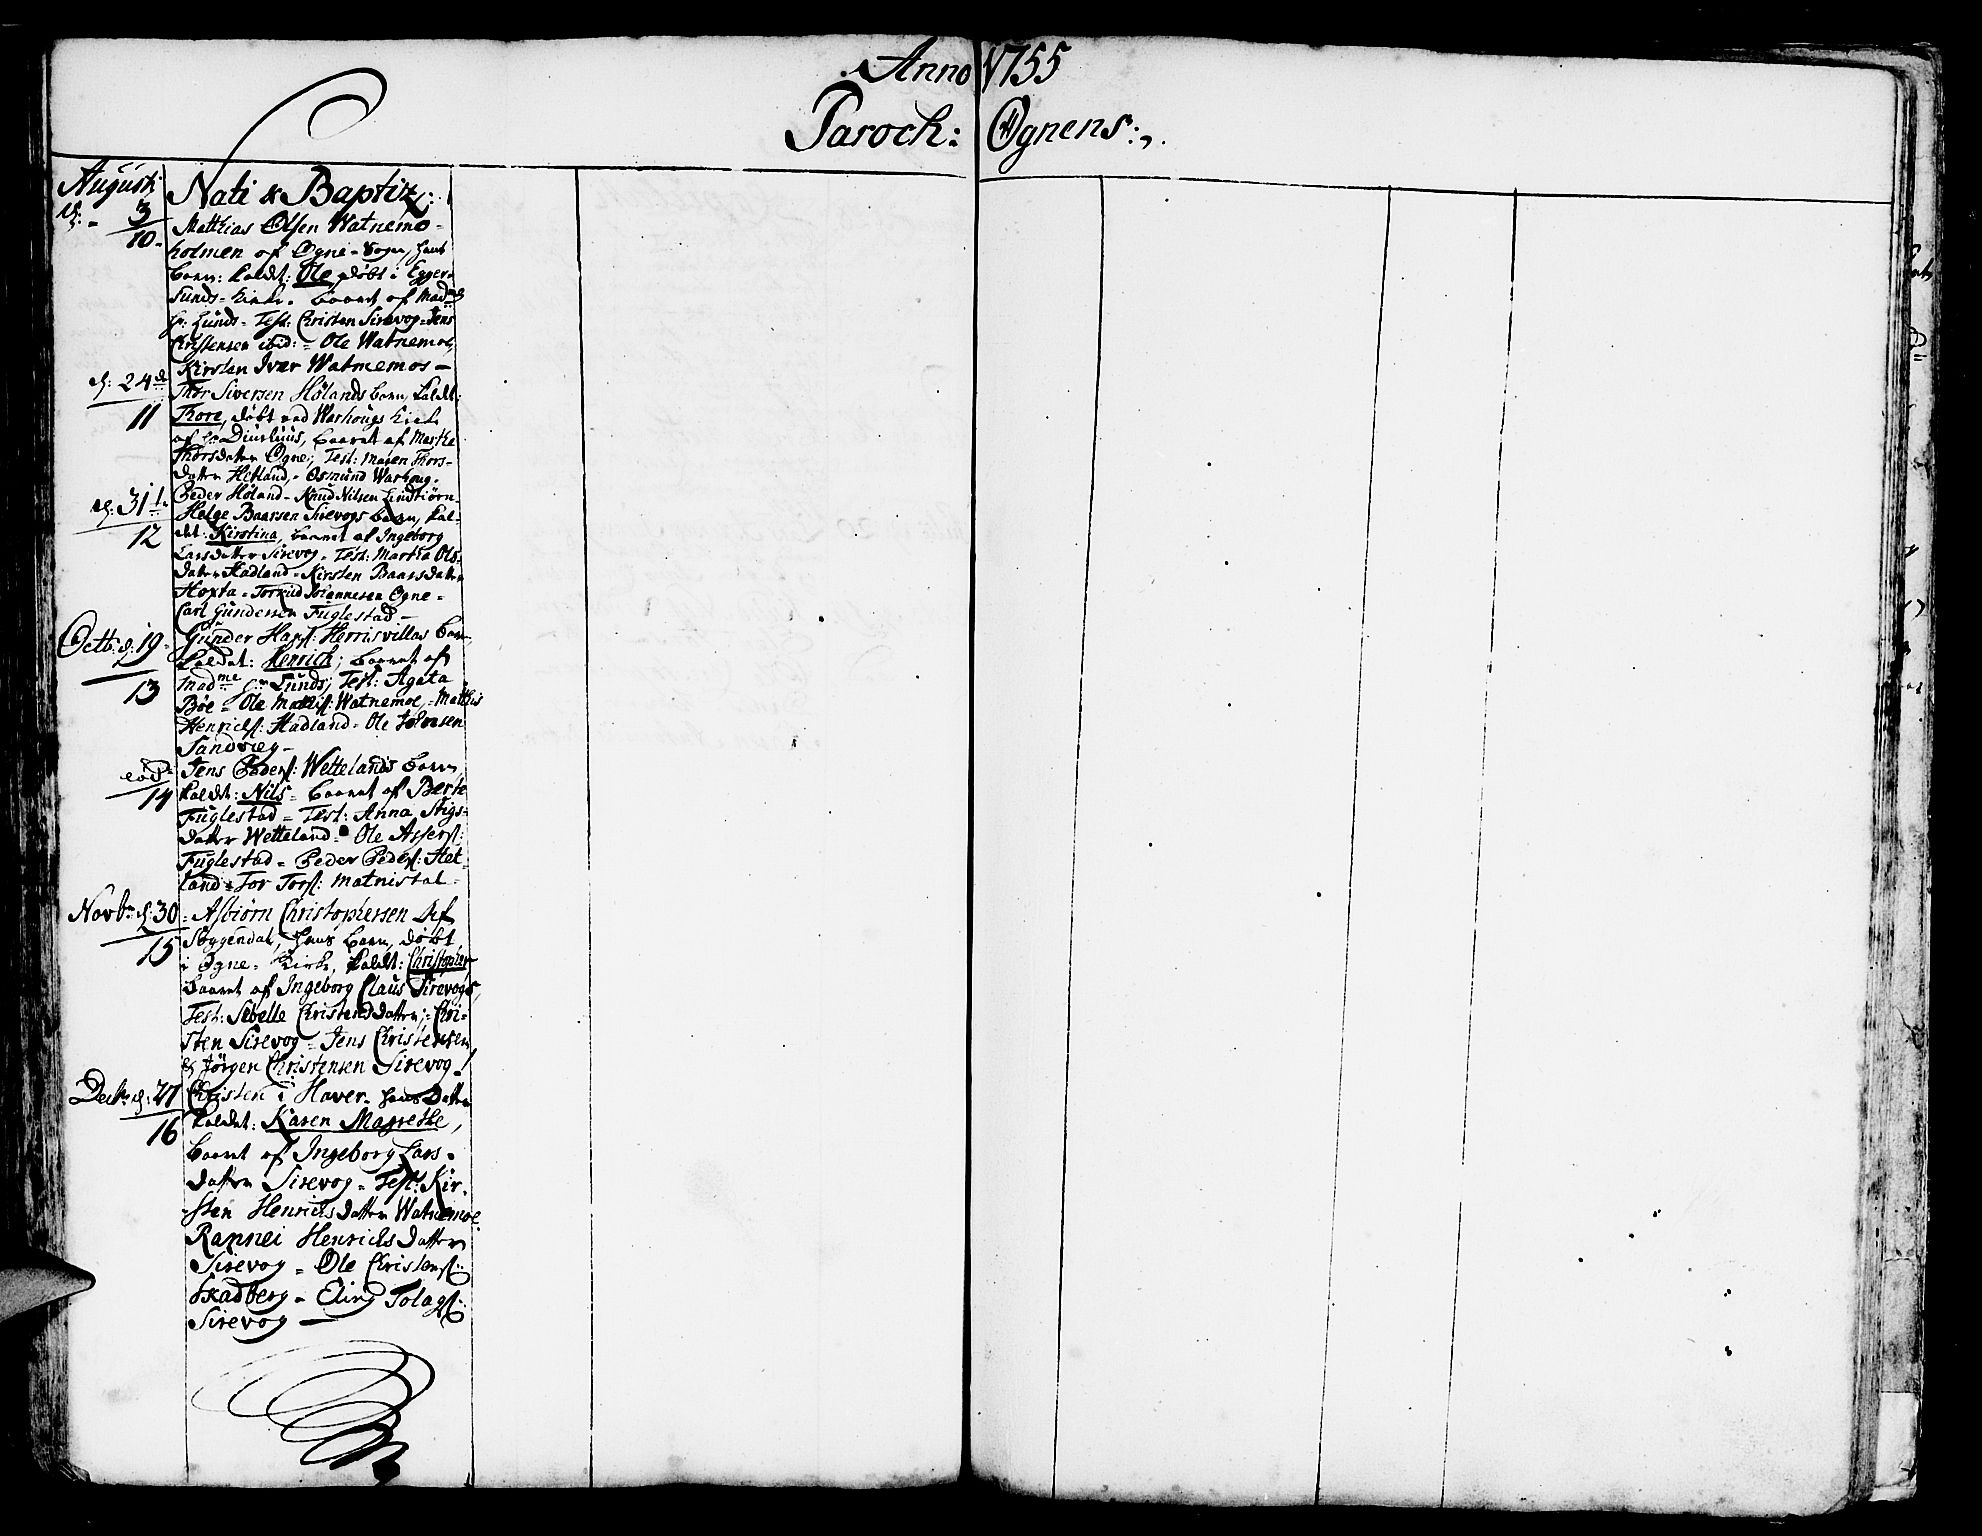 Anno 1755
Paroch: Ognens:
Augusti
d: - 3
10.
Nati & Baptiz:
Matthias Olsen Watnemo-
holmen af Ogne-Sogn, hans
barn: kaldt: Ole, døbt i Egger-
sunds-Kirke. baaret af Madme
Hr: Lunds- Test: Christen Sirevog-Jens
Christensen ibid: - Ole Watnemoe,
Kirsten Iver Watnemos-
d: 24de
11
Thor Siversen Hølands barn, kaldt:
Thore, døbt ved Warhougs Kirke
af Hr: , baaret af Martha
Thorsdatter Ogne; Test: Maren Thors-
datter Hetland,- Osmund Warhoug-
Peder Høland- Knud Nilsen Lindtiørn-
d: 31te
12
Helge Baarsen Sirevogs barn, kal-
det: Kirstina, baaret af Ingeborg
Larsdatter Sirevog- Test: Martha Ols-
datter Hadland- Kirsten Baarsdatter
Hoxta- Torkild Johannesen Ogne-
Carl Gundersen Fuglestad-
Octb: d: 19.
13
Gunder Hansf: Herrisvillas barn,
kaldet: Henrich; baaret af
Madme Hr Lunds; Test: Agata
Bøe- Ole Mathisf: Watnemoe,- Mathis
Henrichsf: Hadland- Ole Johnsen
Sandvieg-
eod:
14
Jens Pedersf: Wettelands barn
kaldet: Nils- baaret af Berte
Fuglestad- Test: Anna Stigs-
datter Wetteland- Ole Assersf:
Fuglestad- Peder Pedersf: Het-
land- Tor Torsf: Matnistal-
Novbr d: 30
15
Asbiørn Christophersen
Soggendal, hans barn, døbt
i Ogne-Kirke, kaldt: Christopher
baaret af Ingeborg Claus Sirevogs,
Test: Sibelle Christensdatter;- Chri-
sten Sirevog- Jens Christensen
& Jørgen Christensen Sirevog.
Decbr d: 27
16
Christen i Haver- hans datter
kaldet: Karen Magrethe,
baaret af Ingeborg Lars-
datter Sirevog- Test: Kir-
sten Henrichsdatter Watnemoe
Rannei Henrichsdatter
Sirevog- Ole Christensf:
Skadberg- Eling Tolagsf:
Sirevog-